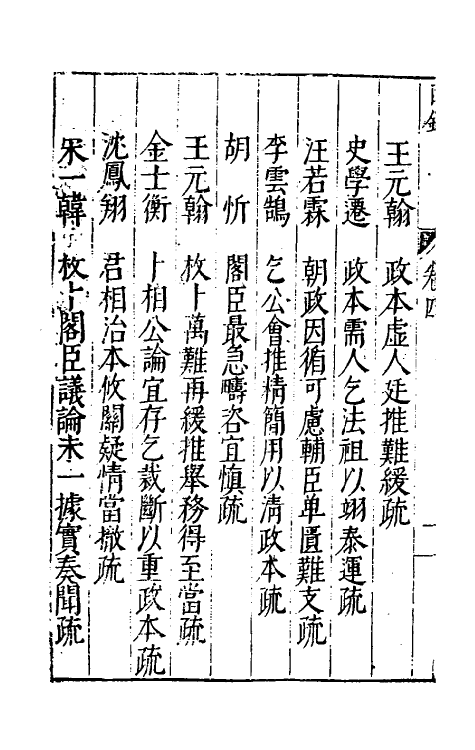 王元翰　政本虛人廷推難緩疏
史學遷　政本需人乞法祖以翊泰運疏
汪若霖　朝政因循可慮輔臣单匱難支疏
李雲鵠　乞公會推精簡用以清政本疏
胡　忻　閣臣最急疇咨宜慎疏
王元翰　枚卜萬難再緩推舉務得至當疏
金士衡　卜相公論宜存乞裁斷以重政本疏
沈鳳翔　君相治本攸關疑情當撤疏
宋一韓　枚卜閣臣議論未一據實奏聞疏